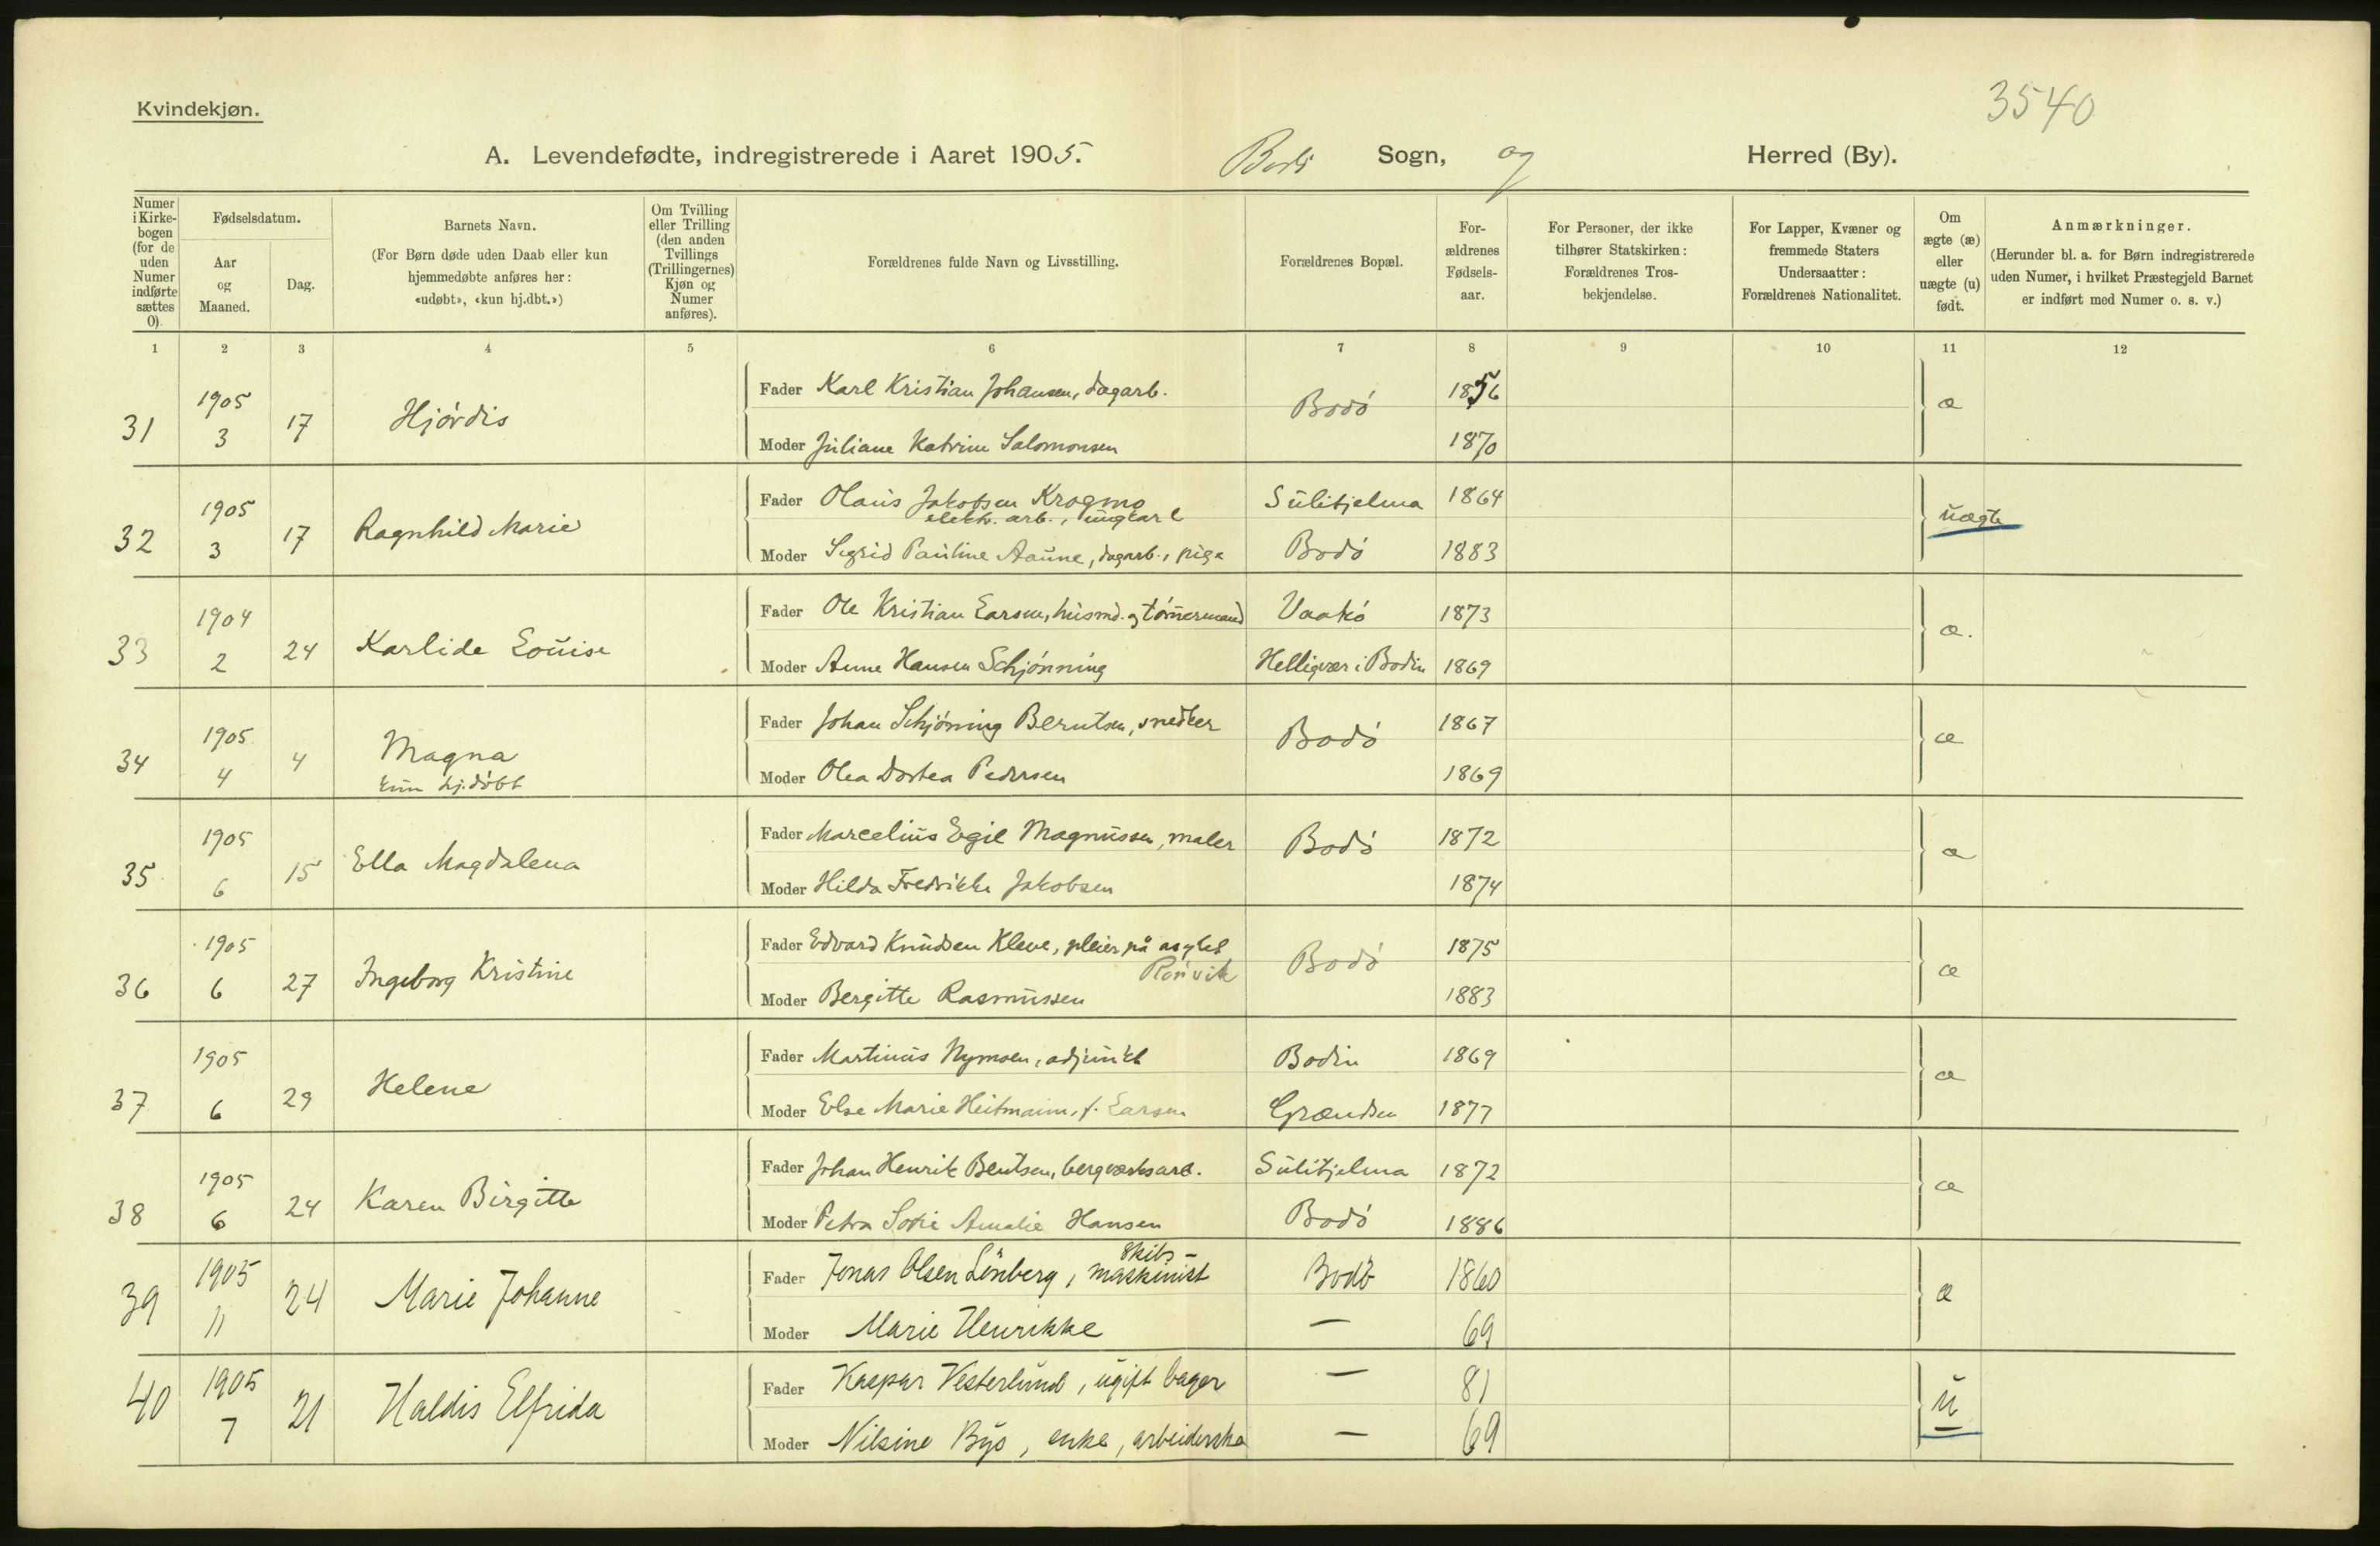 3540
Kvindekjøn.
A. Levendefødte, indregistrerede i Aaret 1905. Bodø Sogn, og Herred (By).
Numer i Kirkebogen (for de uden Numer indførte sættes 0).
Fødselsdatum.
Aar og Maaned.
Dag.
Barnets Navn.
(For Børn døde uden Daab eller kun hjemmedøbte anføres her: «udøbt», «kun hj.dbt.»)
Om Tvilling eller Trilling (den anden Tvillings (Trillingernes) Kjøn og Numer anføres).
Forældrenes fulde Navn og Livsstilling.
Forældrenes Bopæl.
Forældrenes Fødselsaar.
For Personer, der ikke tilhører Statskirken: Forældrenes Trosbekjendelse.
For Lapper, Kvæner og fremmede Staters Undersaatter: Forældrenes Nationalitet.
Om ægte (æ) eller uægte (u) født.
Anmærkninger.
(Herunder bl. a. for Børn indregistrerede uden Numer, i hvilket Præstegjeld Barnet er indført med Numer o. s. v.)
1 2 3 4 5 6 7 8 9 10 11 12
31 1905 3 17 Hjördis Fader Karl Kristian Johansen, dagarb. Bodö 1856 æ
Moder Juliane Katrine Salomonsen 1870
32 1905 3 17 Ragnhild Marie Fader Olaus Jakobsen Krogmo Sulitjelma 1864 uægte
elektr. arb., ungkarl
Moder Sigrid Pauline Aaune, dagarb., pige Bodö 1883
33 1904 2 24 Karlide Louise Fader Ole Kristian Larsen, husmd. og tömermand Vaakö 1873 æ.
Moder Anne Hansen Schjönning Helligvær i Bodin 1869
34 1905 4 4 Magna Fader Johan Schjöning Berntsen, snedker Bodö 1867 æ
kun hj.döbt
Moder Olea Dortea Pedersen 1869
35 1905 6 15 Ella Magdalena Fader Marcelius Egil Magnussen, maler Bodö 1872 æ
Moder Hilda Fredrikke Jakobsen 1874
36 1905 6 27 Ingeborg Kristine Fader Edvard Knudsen Kleve, pleier på asylet Bodö 1875 æ
Rönvik
Moder Bergitte Rasmussen 1883
37 1905 6 29 Helene Fader Martinus Nymoen, adjunkt Bodin 1869 æ
Moder Else Marie Heitmann, f. Larsen Grændsen 1877
38 1905 6 24 Karen Birgitte Fader Johan Henrik Bentsen, bergværksarb. Sulitjelma 1872 æ
Moder Petra Sofie Amalie Hansen Bodö 1886
39 1905 11 24 Marie Johanne Fader Jonas Olsen Lönberg, skibs-maskinist Bodö 1860 æ
Moder Marie Henrikke — 69
40 1905 7 21 Haldis Elfrida Fader Kaspar Vesterlund, ugift bager — 81 u
Moder Nilsine Bys, enke, arbeiderske — 69